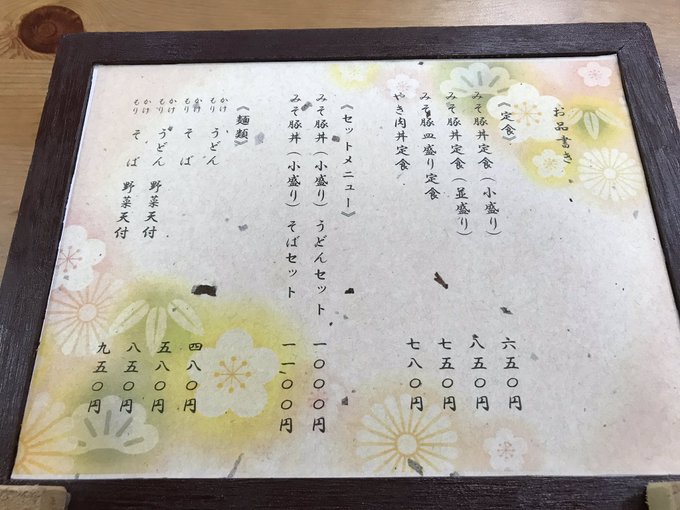 お品書き
《定食》
みそ豚丼定食（小盛り） 六五〇円
みそ豚丼定食（並盛り） 八五〇円
みそ豚皿盛り定食 七五〇円
やき肉丼定食 七八〇円
《セットメニュー》
みそ豚丼（小盛り）うどんセット 一〇〇〇円
みそ豚丼（小盛り）そばセット 一一〇〇円
《麺類》
かけ もり うどん 四八〇円
かけ もり そば 五八〇円
かけ もり うどん 野菜天付 八五〇円
かけ もり そば 野菜天付 九五〇円